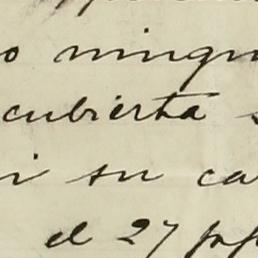 o ningu
cubierta s
i su ca
el 27